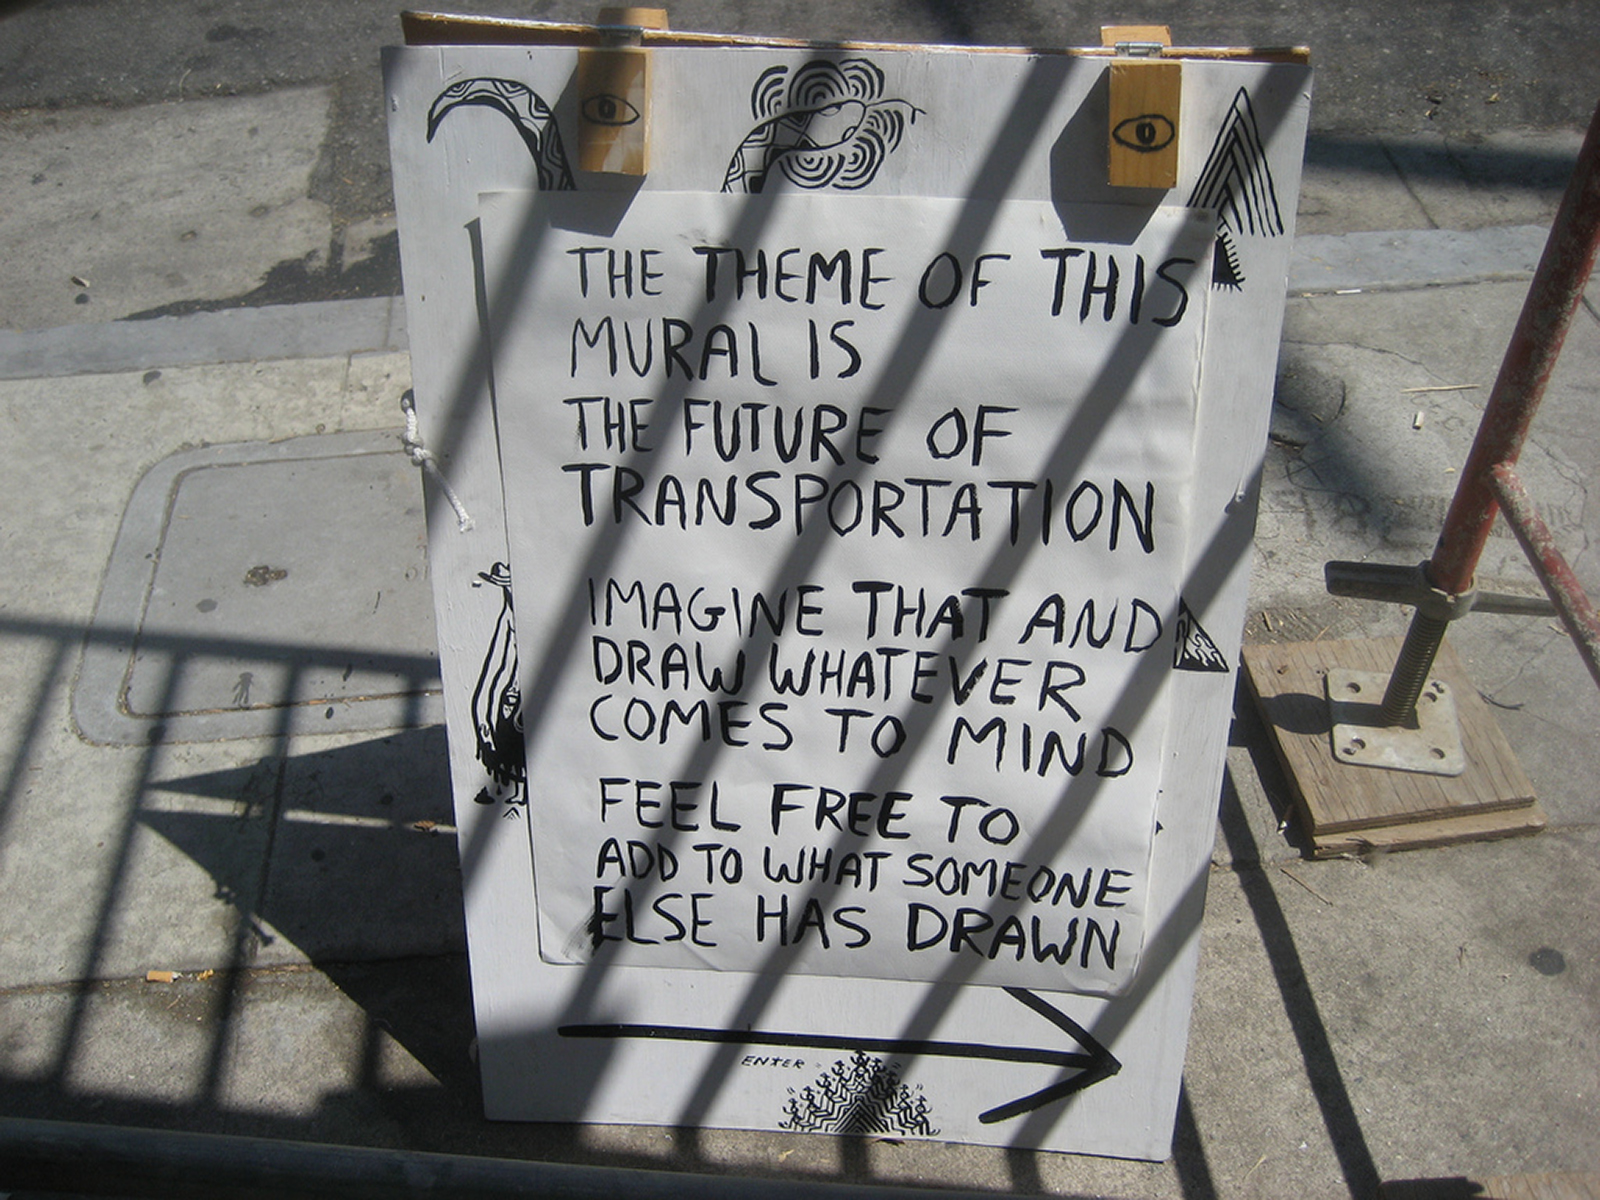 THE THEME OF THIS
MURAL IS
THE FUTURE OF
TRANSPORTATION
IMAGINE THAT AND
DRAW WHATEVER
COMES TO MIND
FEEL FREE TO
ADD TO WHAT SOMEONE
ELSE HAS DRAWN
ENTER